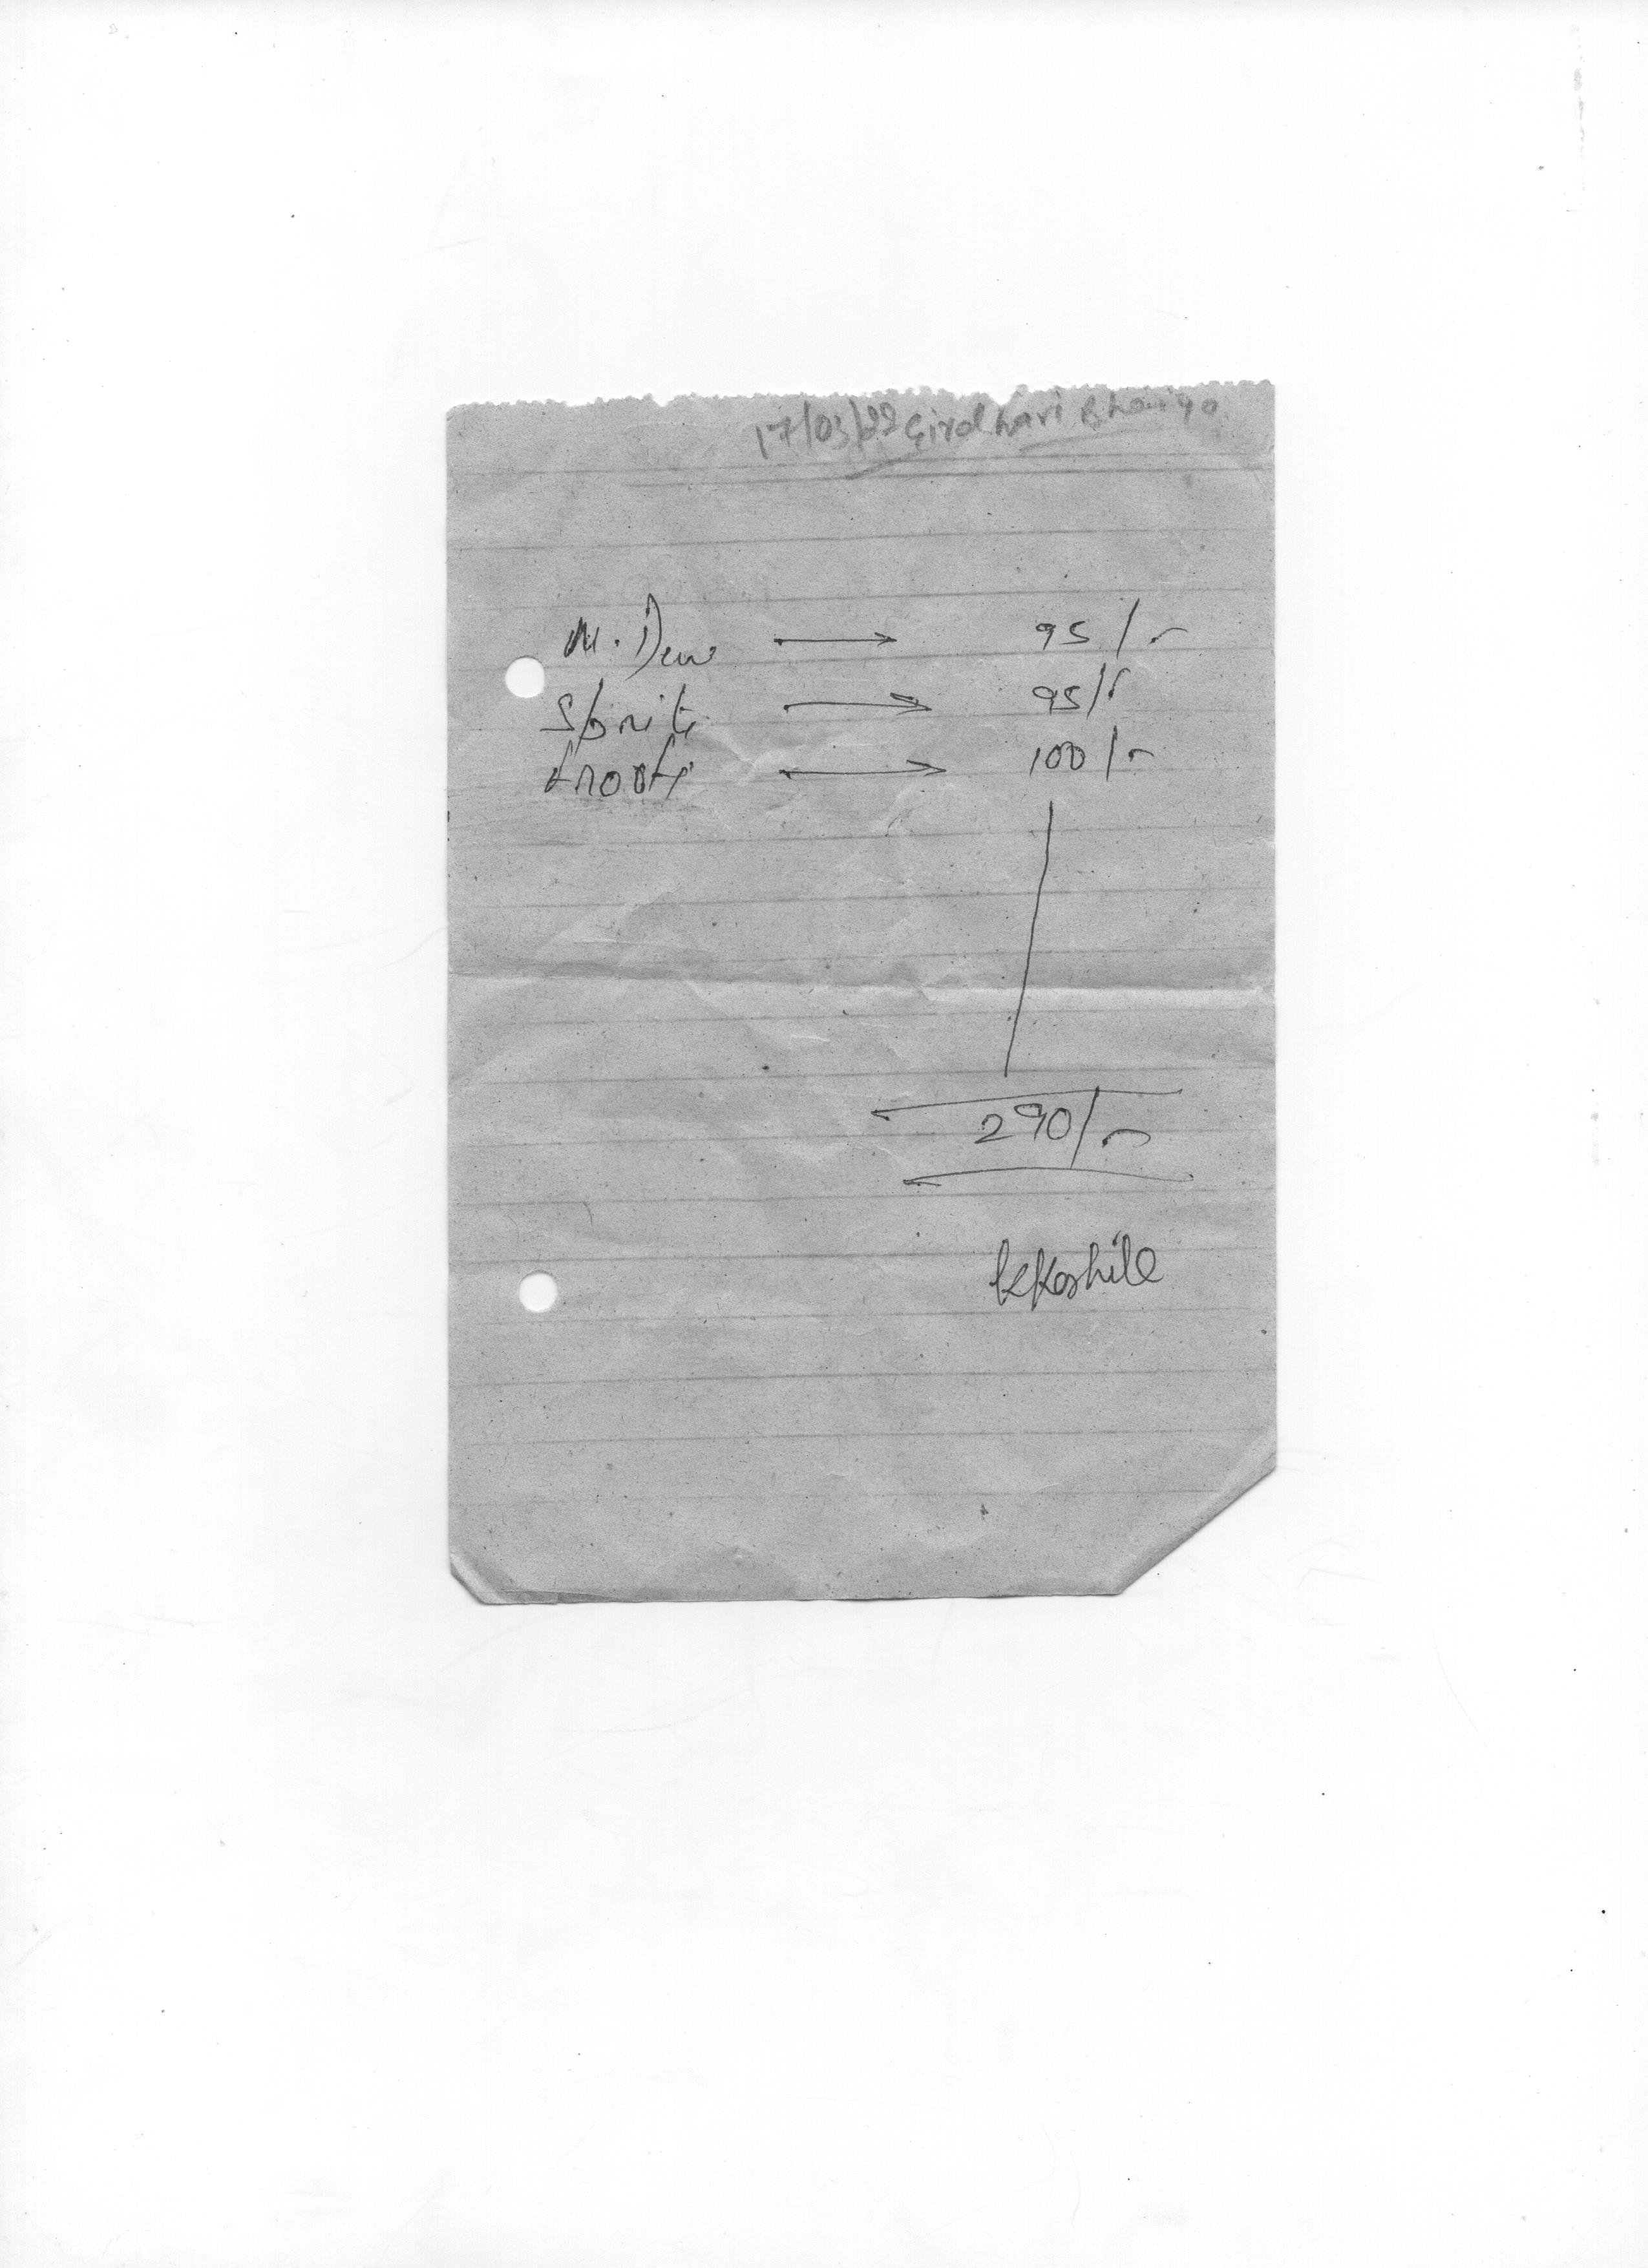 17/03/22 Girdhari Bhaiya
M. Dew → 95/-
Sprite → 95/-
frooti → 100/-
290/-